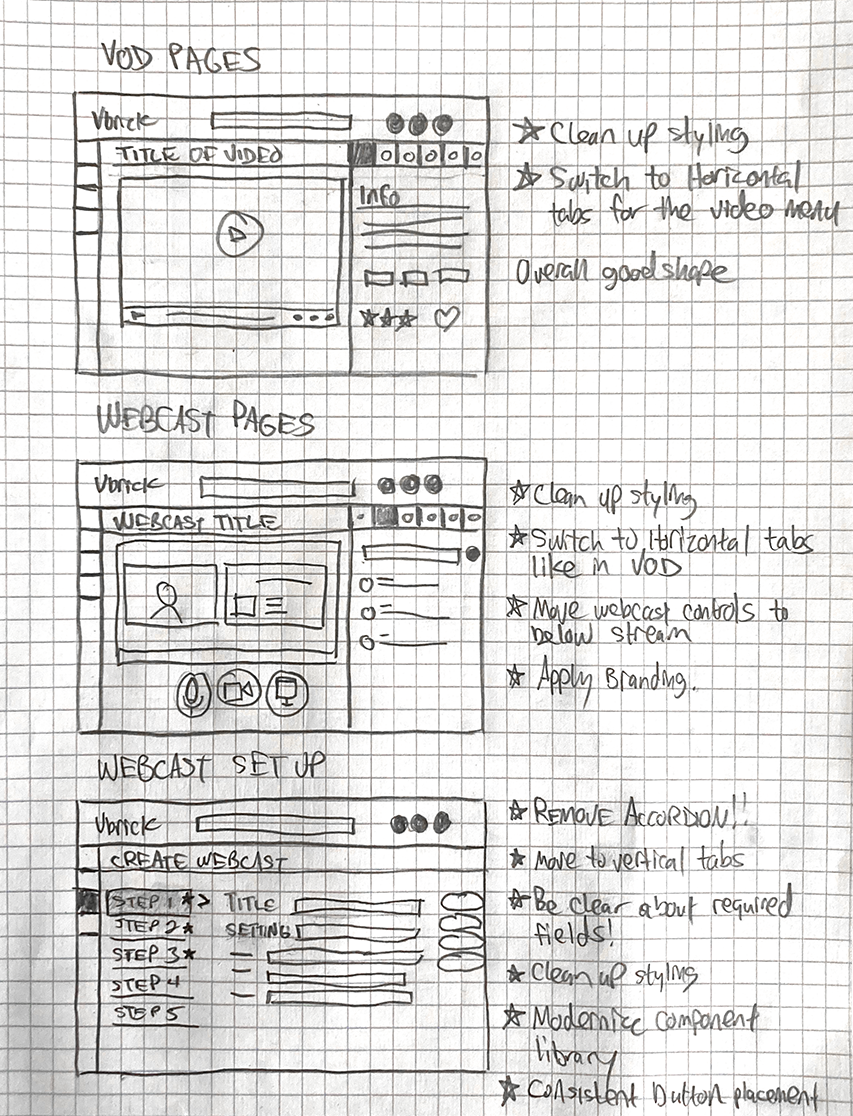 VOD PAGES
Vbrick
TITLE OF VIDEO
Info
★ Clean up styling
★ Switch to Horizontal
tabs for the video menu
Overall good shape
WEBCAST PAGES
Vbrick
WEBCAST TITLE
★ Clean up styling
★ Switch to Horizontal tabs
like in VOD
★ Move webcast controls to
below stream
★ Apply Branding.
WEBCAST SET UP
Vbrick
CREATE WEBCAST
STEP 1 ★ >
STEP 2 ★
STEP 3 ★
STEP 4
STEP 5
TITLE
SETTING
★ REMOVE ACCORDION!!
★ Move to vertical tabs
★ Be clear about required
fields!
★ Clean up styling
★ Modernize component
library
★ Consistent Button placement